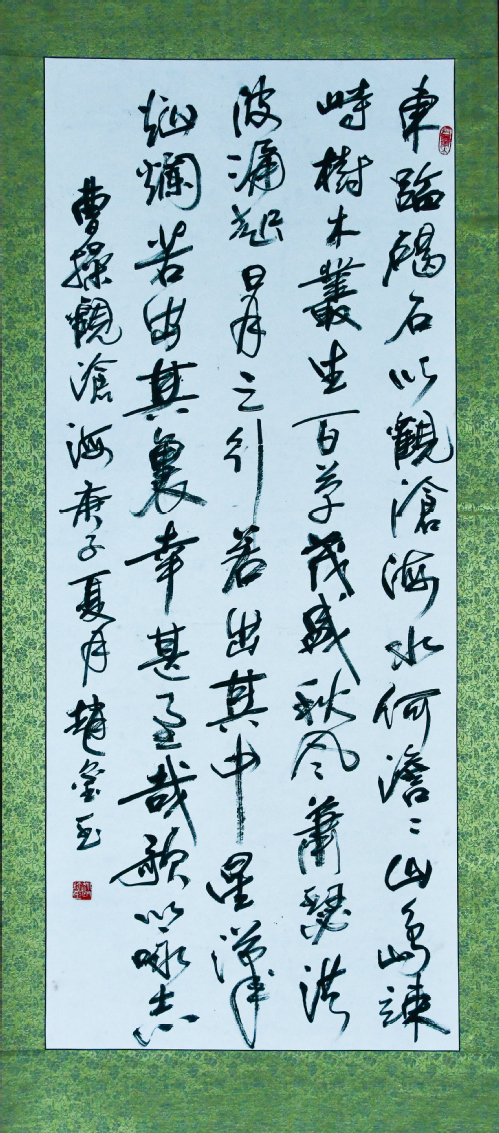 東臨碣石以觀滄海水何澹〻山島竦
峙樹木叢生百草茂盛秋风蕭瑟洪
波涌起日月之行若出其中星漢
灿爛若出其裏幸甚至哉歌以咏志
曹操觀滄海庚子夏月趙